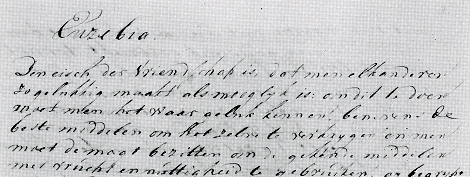 Euzebia
Den eisch der Vriendschap is, dat men elkanderen
zo gelukkig maakt als mooglyk is: om dit te doen
moet men het waar geluk kennen, benevens de
beste middelen om het zelve te verkrygen en men
moet de maat bezitten om de gekende middelen
met vrucht en nuttigheid te gebruiken,